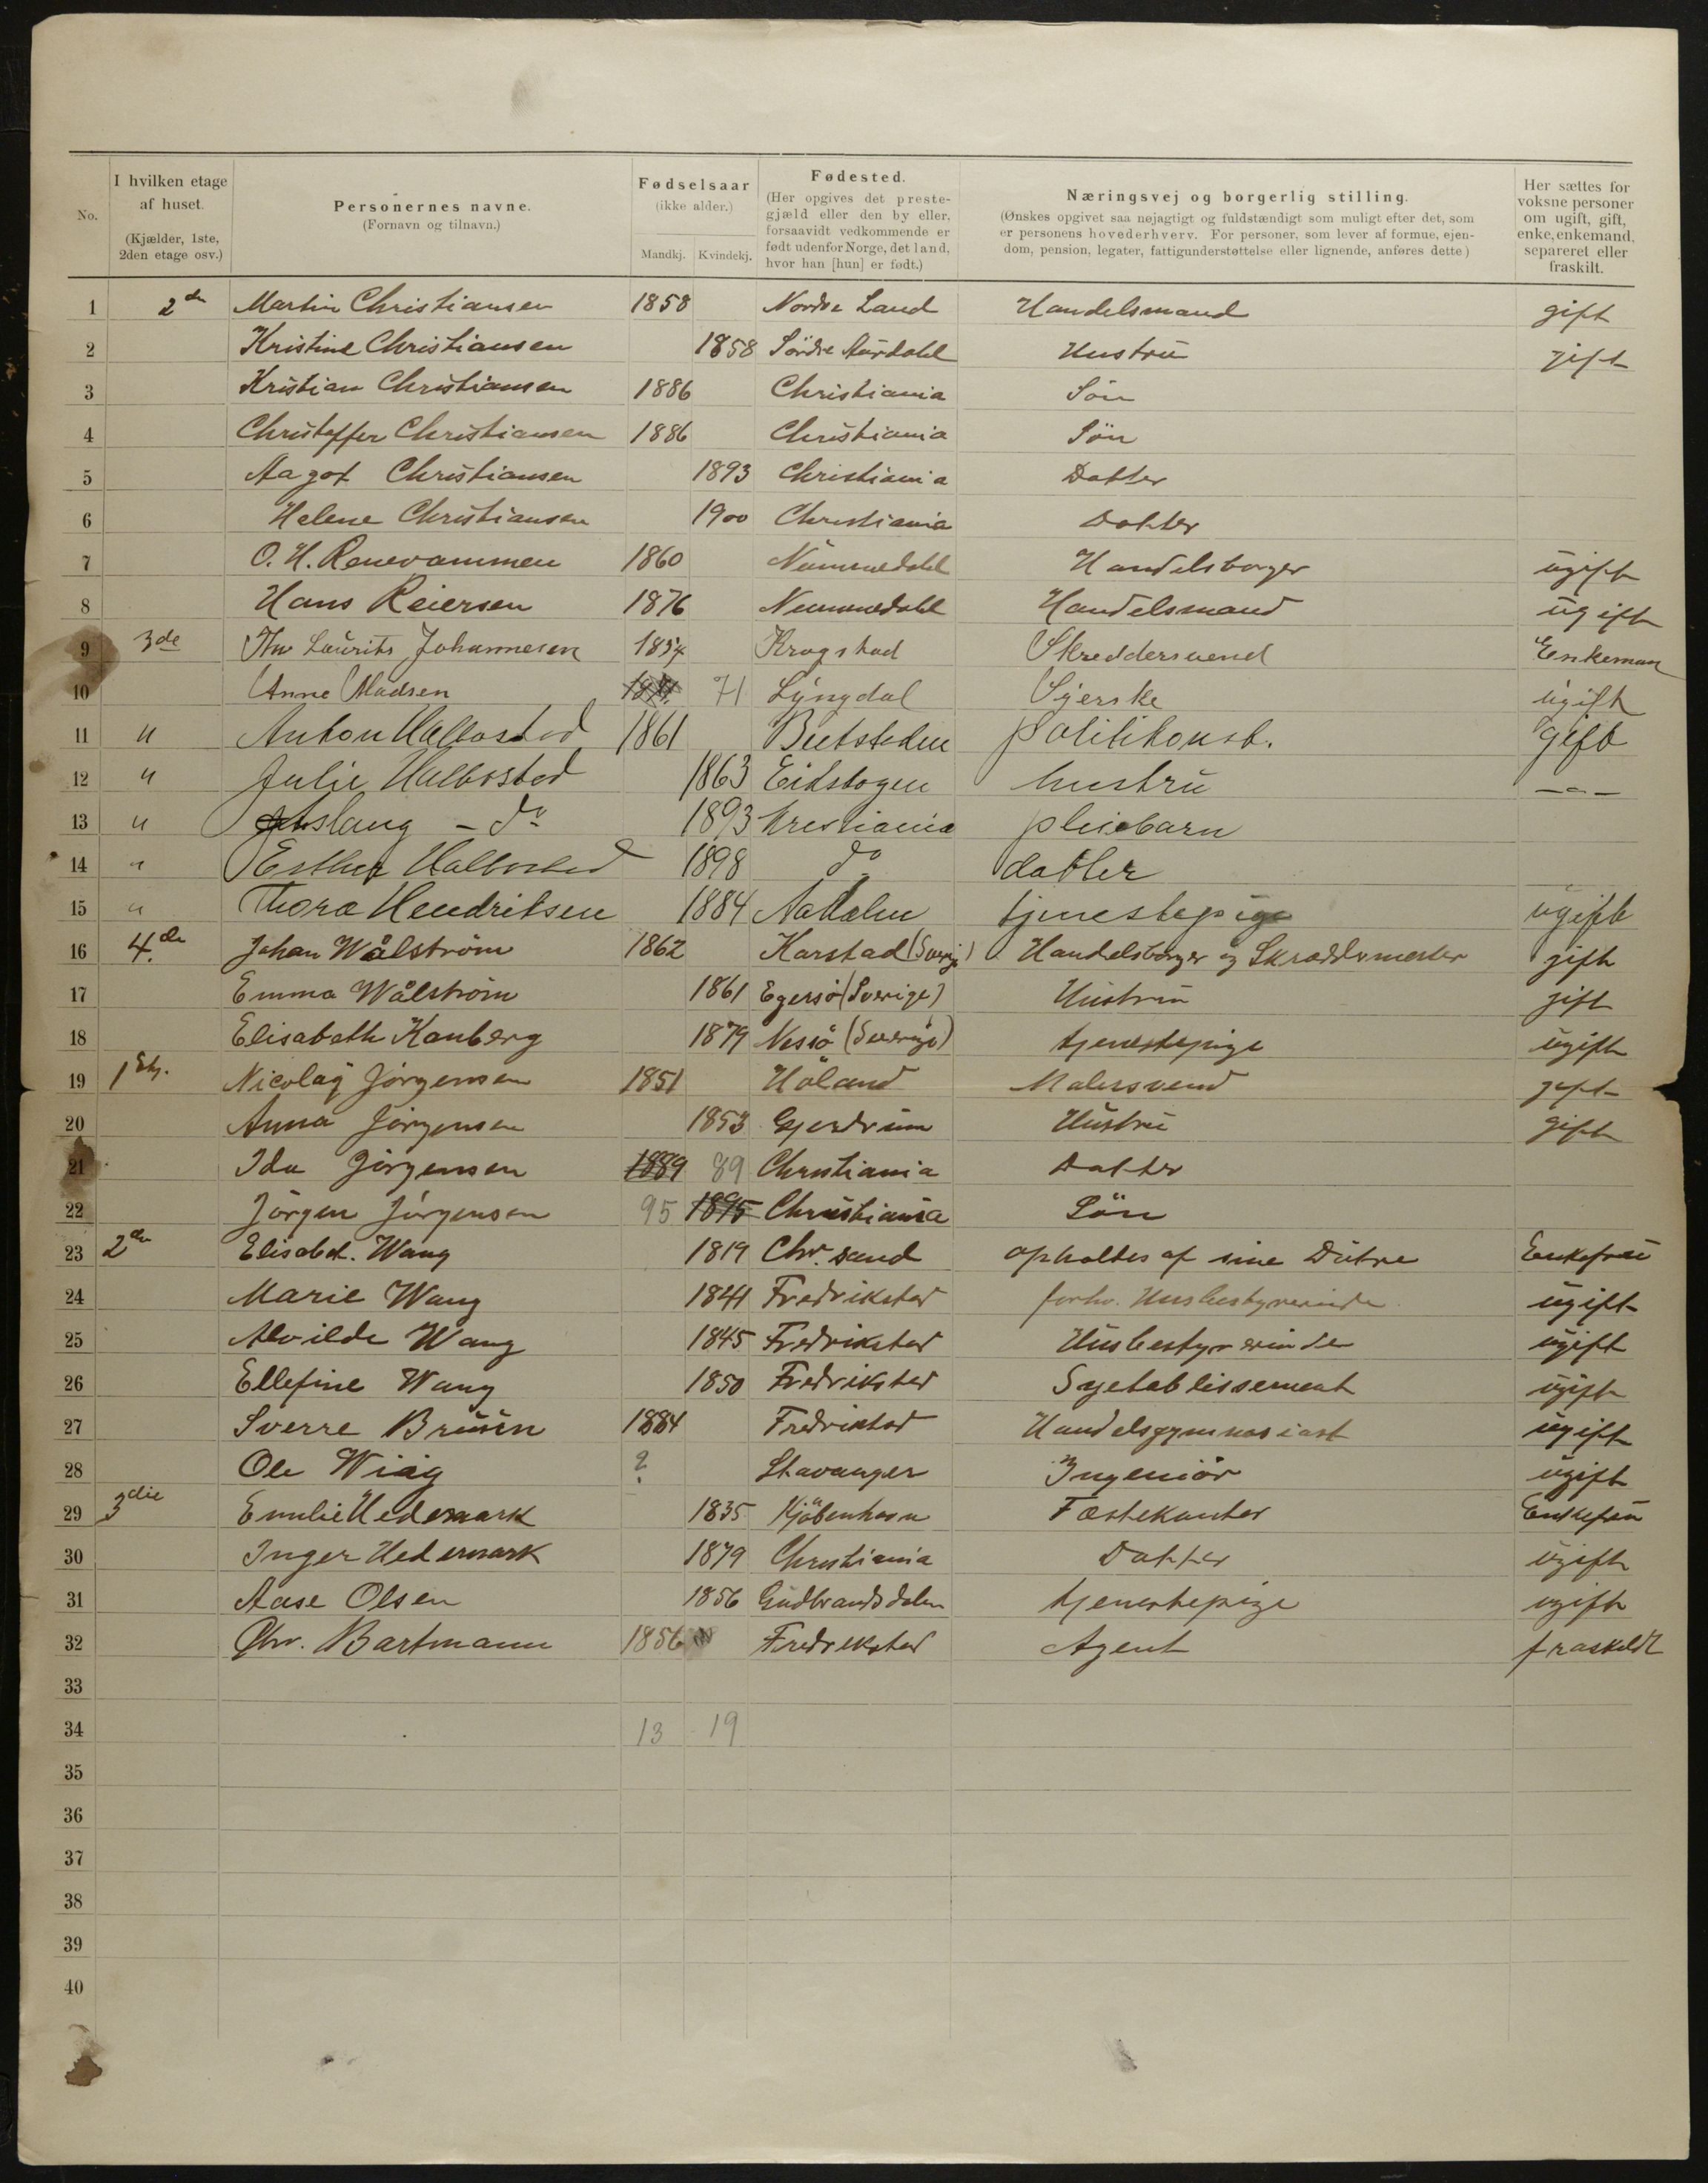 I hvilken etage af huset. (Kjælder, 1ste, 2den etage osv.)
Personernes navne. (Fornavn og tilnavn.)
Fødselsaar (ikke alder.) Mandkj. Kvindekj.
Fødested. (Her opgives det prestegjæld eller den by eller, forsaavidt vedkommende er født udenfor Norge, det land, hvor han [hun] er født.)
Næringsvej og borgerlig stilling. (Ønskes opgivet saa nøjagtigt og fuldstændigt som muligt efter det, som er personens hovederhverv. For personer, som lever af formue, ejendom, pension, legater, fattigunderstøttelse eller lignende, anføres dette)
Her sættes for voksne personer om ugift, gift, enke, enkemand, separeret eller fraskilt.
No.
1 2den Martin Christiansen 1858 Nordre Land Handelsmand gift
2 Kristine Christiansen 1858 Søndre Aurdahl Hustru gift
3 Kristian Christiansen 1886 Christiania Sön
4 Christoffer Christiansen 1886 Christiania Sön
5 Aagot Christiansen 1893 Christiania Datter
6 Helene Christiansen 1900 Christiania Datter
7 O. H. 1860 Nummedahl Handelsborger ugift
8 Hans Reiersen 1876 Nummedahl Handelsmand ugift
9 3de Laurits Johannesen 1854 Krogstad Skreddersvend Enkeman
10 Anne Madsen 71 Lyngdal Syerske ugift
11 " Anton 1861 Beitstaden politikonst. gift
12 " Julie 1863 Eidskogen hustru —"—
13 " Aslaug - do 1893 Kristiania pleiebarn
14 " Esther 1898 do datter
15 " Thora Hendriksen 1884 tjenestepige ugift
16 4.de Johan Wålström 1862 Karstad (Sverige) Handelsborger og Skræddermester gift
17 Emma Wålström 1861 Egersö (Sverige) Hustru gift
18 Elisabeth Kanberg 1879 Nessö (Sverige) tjenestepige ugift
19 1 Etg. Nicolay Jörgensen 1851 Höland Malersvend gift
20 Anna Jörgensen 1853 Gjerdrum Hustru gift
21 Ida Jörgensen 1889 89 Christiania Datter
22 Jörgen Jörgensen 95 1895 Christiania Sön
23 2den Elisabet. Wang 1819 Chr. sand opholdes af sine Dötre Enkefrue
24 Marie Wang 1841 Fredrikstad forhv. Husbestyrerinde ugift
25 Alvilde Wang 1845 Fredrikstad Husbestyrerinde ugift
26 Ellefine Wang 1850 Fredrikstad Syetablissement ugift
27 Sverre Bruun 1884 Fredrikstad Handelsgymnasiast ugift
28 Ole Wiig ? Stavanger Ingeniör ugift
29 3die Emilie Hedemark 1835 Kjöbenhavn Fæstekontor Enkefru
30 Inger Hedemark 1879 Christiania Datter ugift
31 Aase Olsen 1856 Gudbrandsdalen tjenestepige ugift
32 Chr. Bartmann 1856 Fredrikstad Agent fraskildt
33
34 13 19
35
36
37
38
39
40